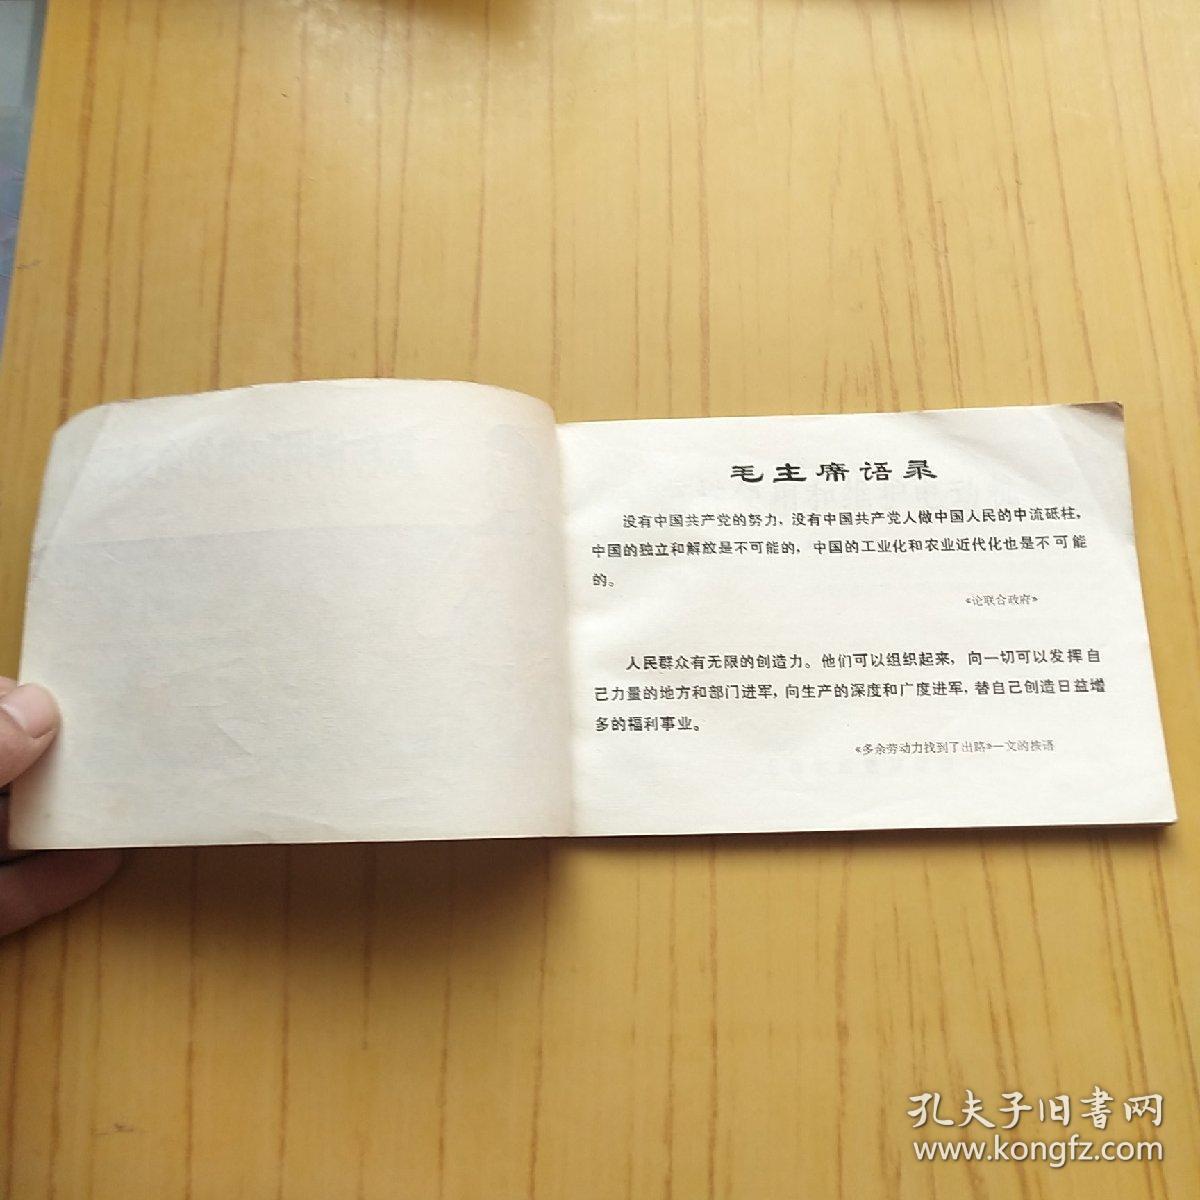 毛主席语录
没有中国共产党的努力，没有中国共产党人做中国人民的中流砥柱，
中国的独立和解放是不可能的，中国的工业化和农业近代化也是不可能
的。
《论联合政府》
人民群众有无限的创造力。他们可以组织起来，向一切可以发挥自
己力量的地方和部门进军，向生产的深度和广度进军，替自己创造日益增
多的福利事业。
《多余劳动力找到了出路》一文的按语
孔夫子旧书网
www.kongfz.com